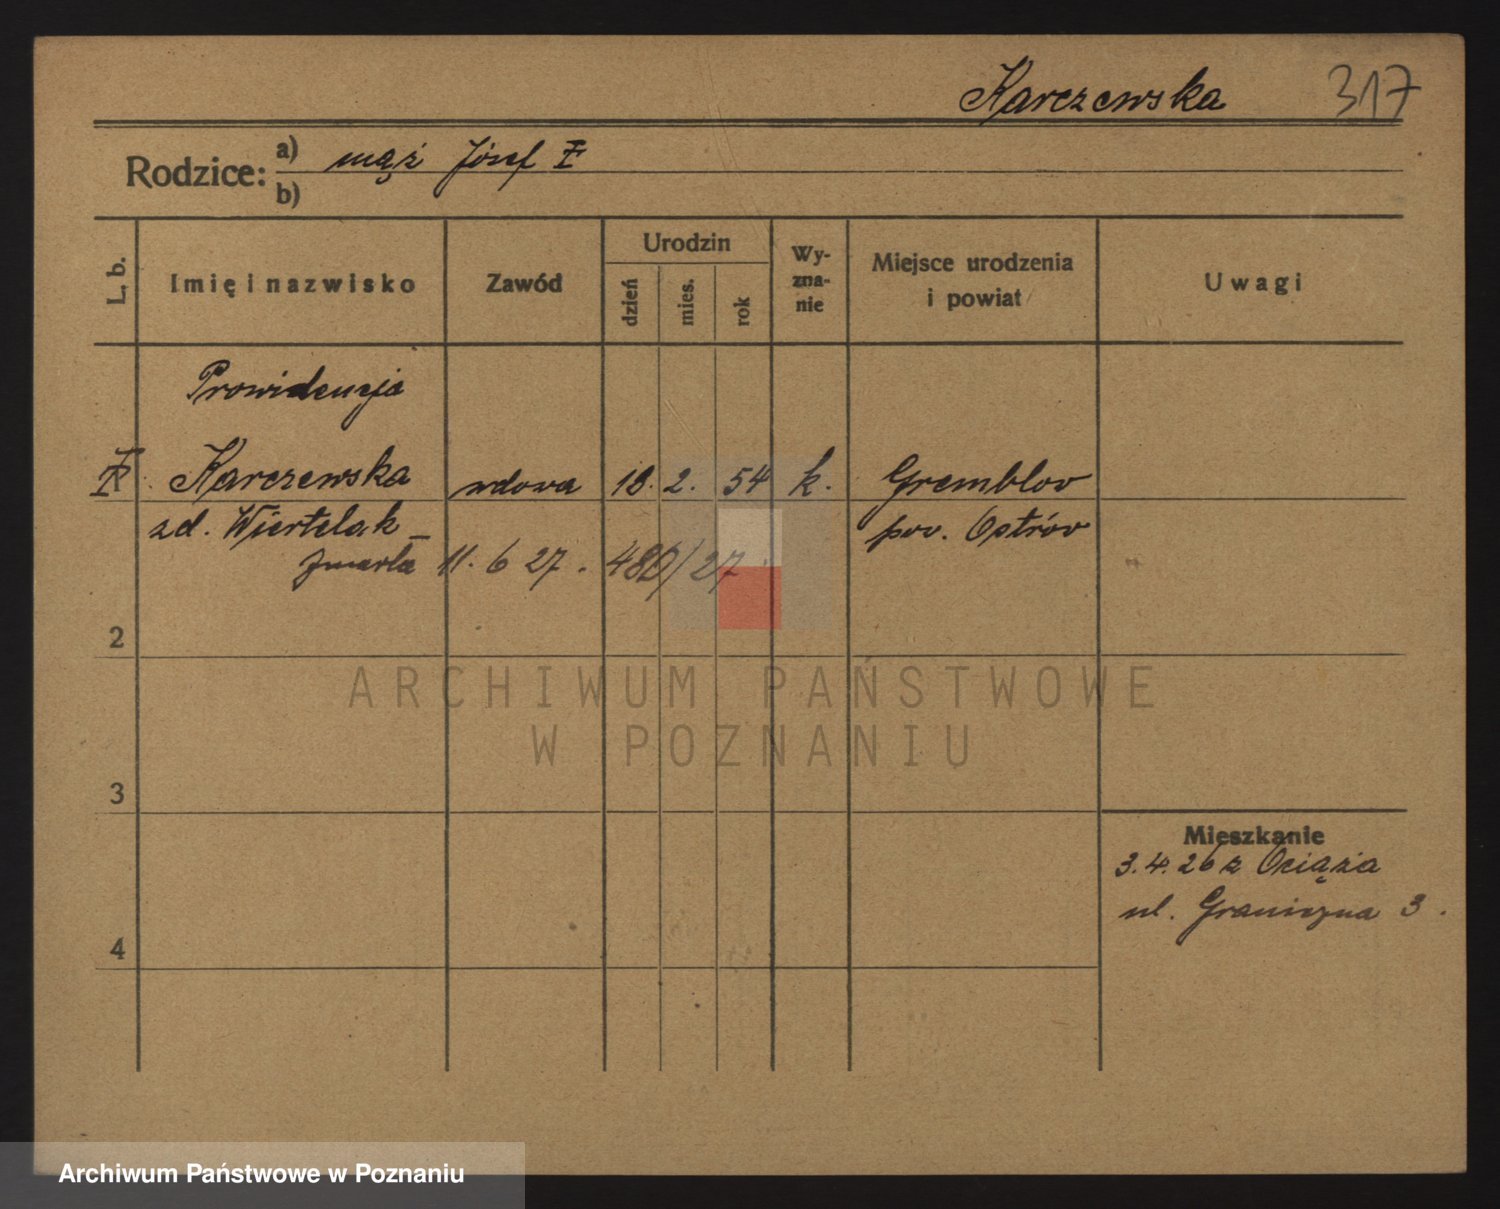 Karczewska 317
Rodzice:
a) mąż Józef
b)
L. b.
Imię i nazwisko
Zawód
Urodzin
dzień
mies.
rok
Wy-
zna-
nie
Miejsce urodzenia
i powiat
Uwagi
Prowidencja
Karczewska wdowa 18. 2. 54 k. Gremblov
zd. Wiertelak – pov. Ostróv
zmarła 11. 6 27. 480/27
2
3
4
Mieszkanie
3.4.26 z Ociąża
ul. Graniczna 3.
ARCHIWUM PAŃSTWOWE
W POZNANIU
Archiwum Państwowe w Poznaniu